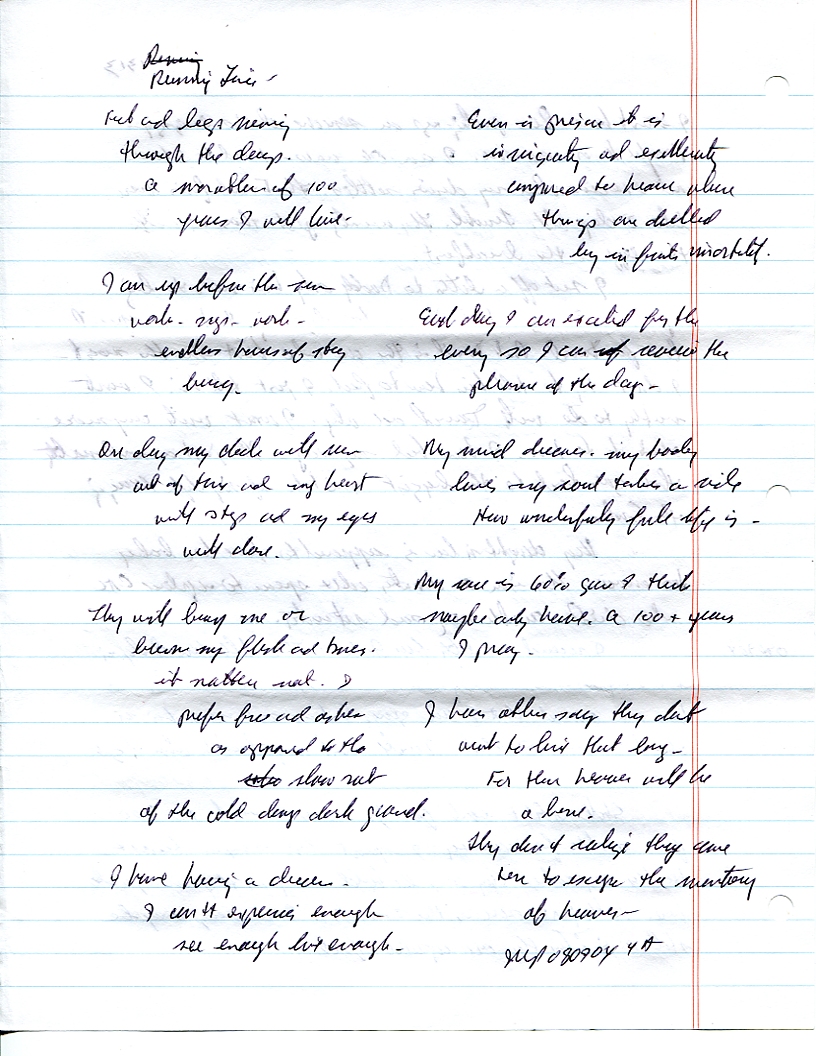 Running
Running Time -
Feet and legs moving
through the days.
a marathon of 100
years I will live -
I am up before the sun
work - - work -
endless hours of stay
busy -
One day my clock will run
out of time and my heart
will stop and my eyes
will close.
They will bury me or
burn my flesh and bones.
it matters not. I
prefer fire and ashes
as opposed to the
slow rot
of the cold damp dark ground.
I have having a dream.
I can't experience enough
see enough live enough -
Even in prison it is
and
compared to heaven where
things are dulled
by infinite immortality.
Each day I am excited for the
every so I can receive the
of the day -
My mind dreams. my body
loves my soul takes a ride
How wonderfully full life is -
My race is 60% gone I think
maybe only have. a 100+ years
I pray -
I hear others say they don't
want to live that long -
For them heaven will be
a bore.
They don't realize they came
here to escape the monotony
of heaven -
080904 4A